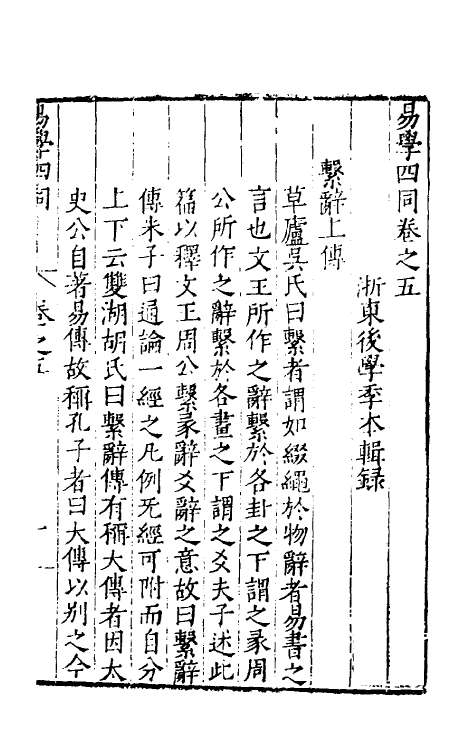 易學四同卷之五
浙東後學季本輯録
繫辭上傳
草廬吳氏曰繫者謂如綴繩於物辭者易書之
言也文王所作之辭繫於各卦之下謂之彖周
公所作之辭繫於各畫之下謂之爻夫子述此
篇以釋文王周公繫彖辭爻辭之意故曰繫辭
傳朱子曰通論一經之凡例无經可附而自分
上下云雙湖胡氏曰繫辭傳有稱大傳者因太
史公自著易傳故稱孔子者曰大傳以别之今
易學四同 卷之五 一